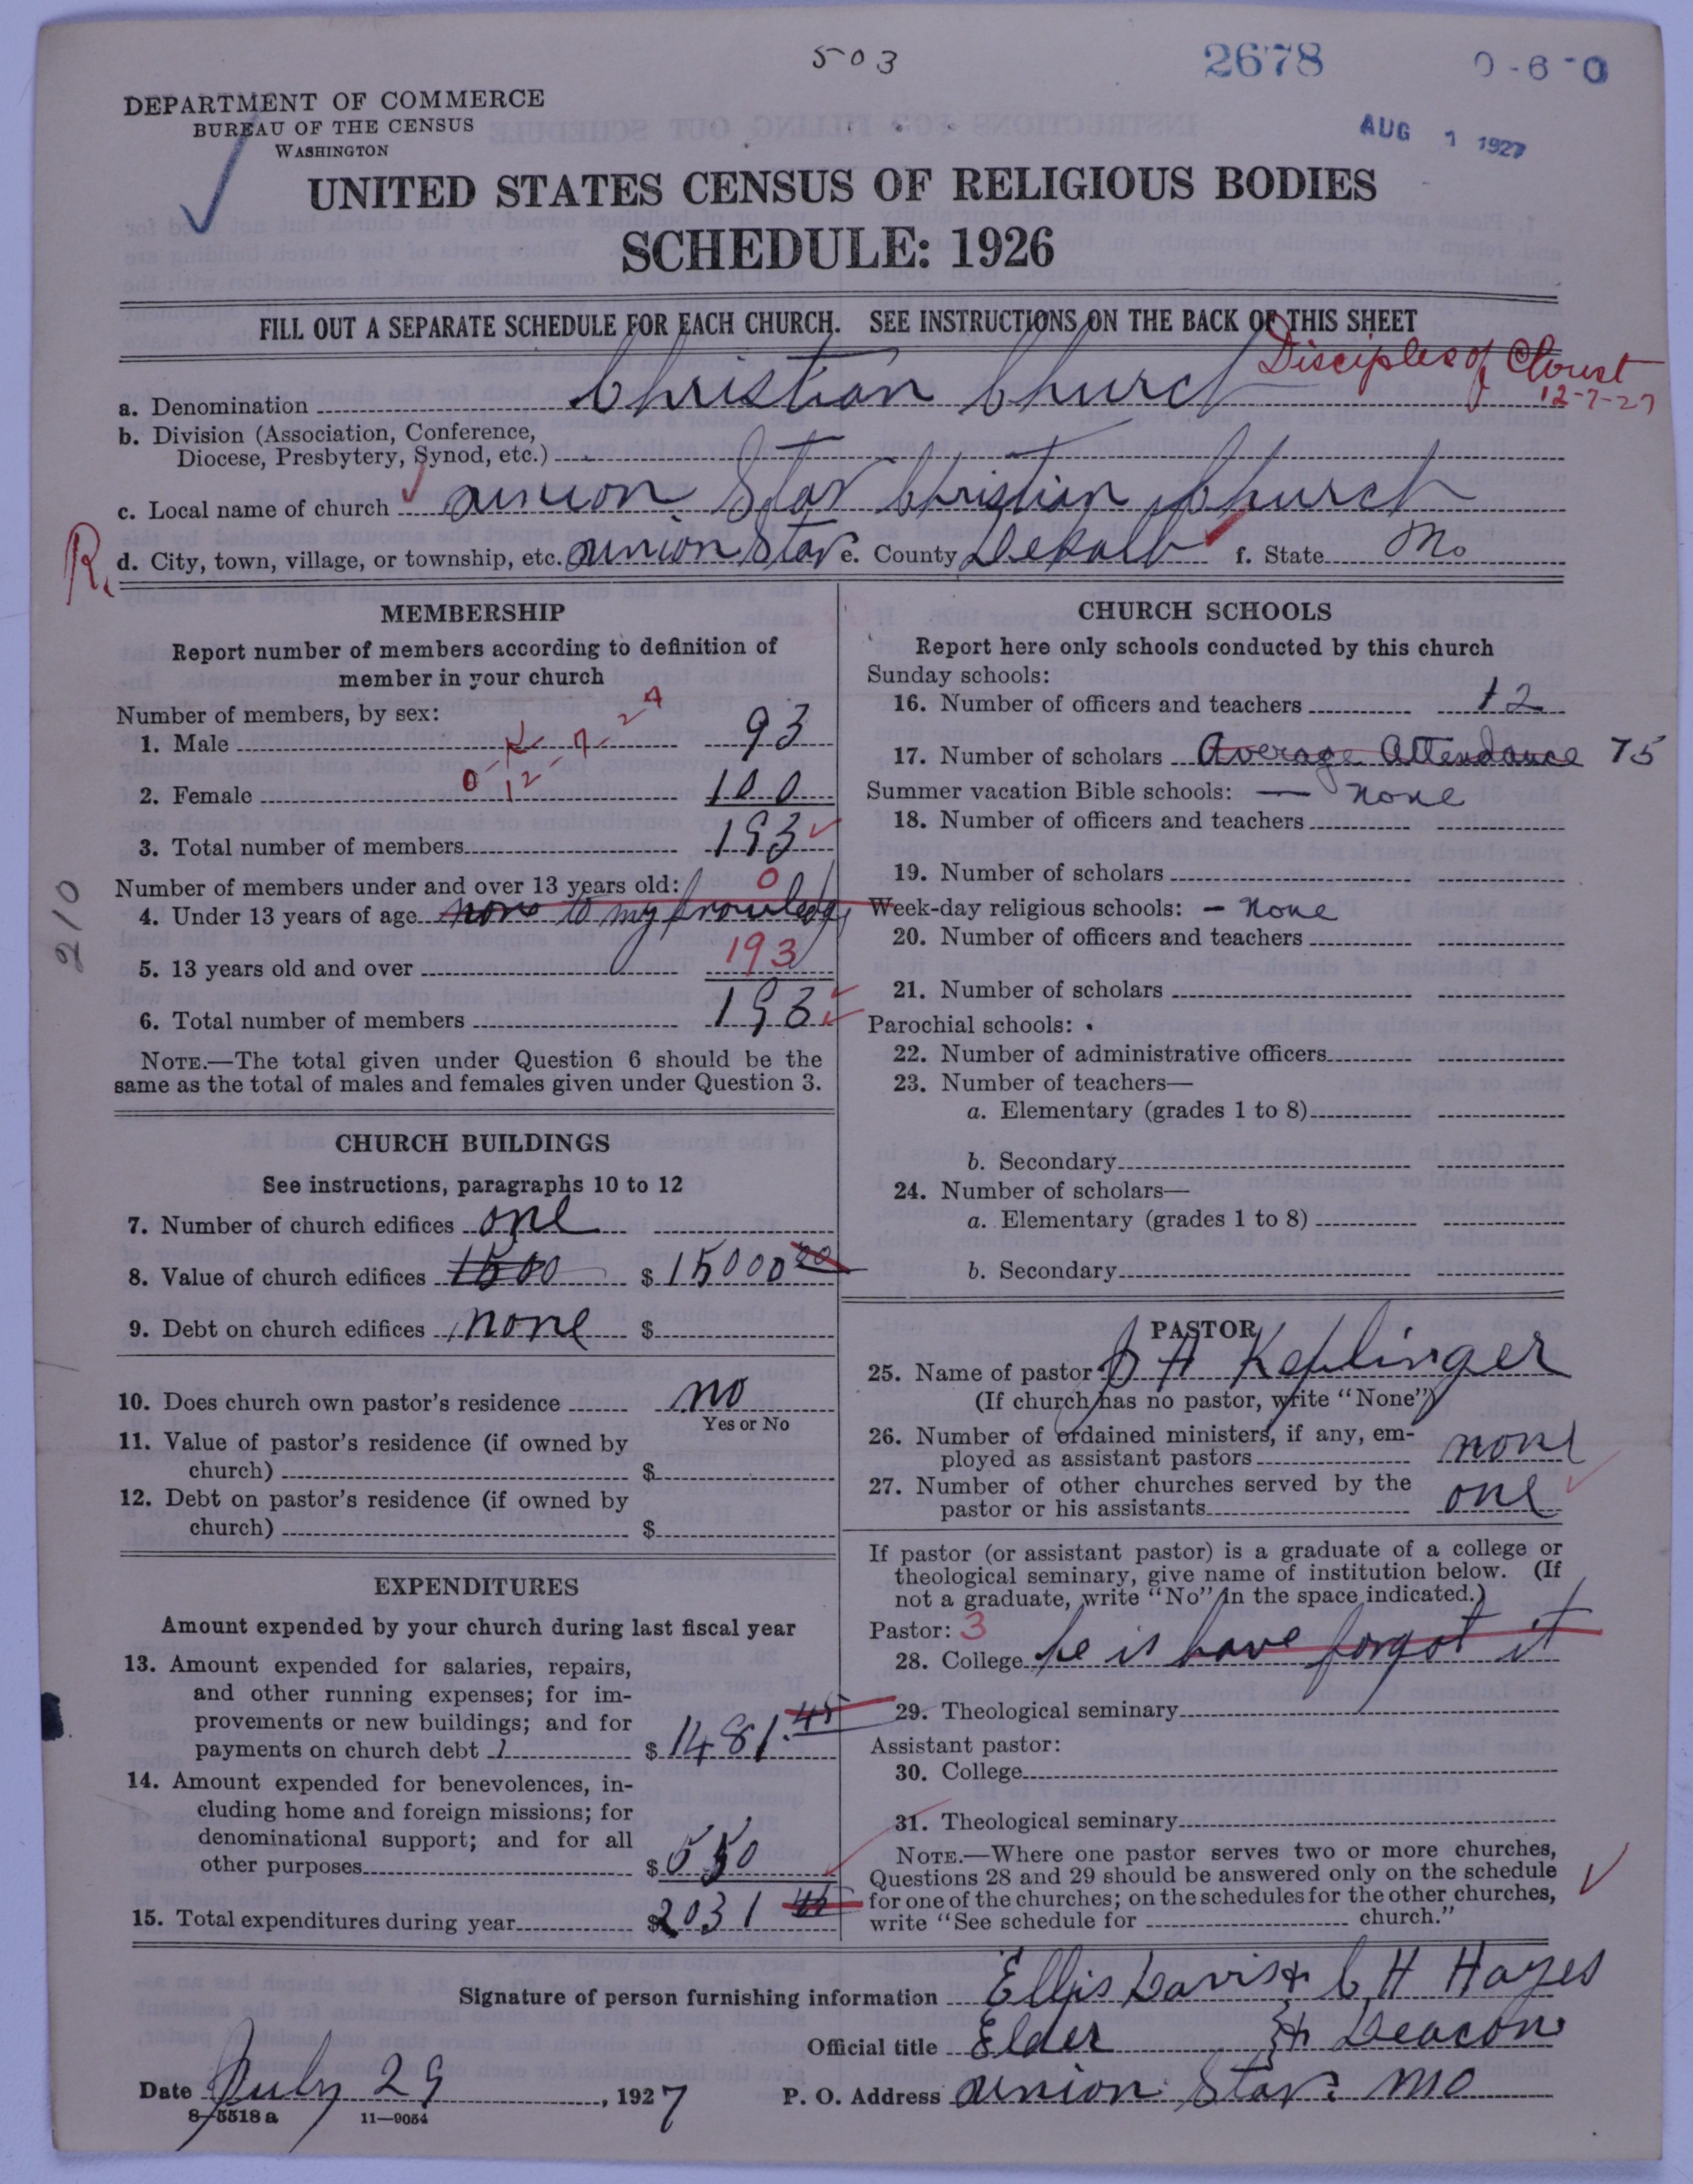 503 2678 0-6-0
DEPARTMENT OF COMMERCE
BUREAU OF THE CENSUS
WASHINGTON
AUG 1 1927
UNITED STATES CENSUS OF RELIGIOUS BODIES
SCHEDULE: 1926
FILL OUT A SEPARATE SCHEDULE FOR EACH CHURCH. SEE INSTRUCTIONS ON THE BACK OF THIS SHEET
a. Denomination Christian Church Disciples of Christ
12-7-27
b. Division (Association, Conference,
Diocese, Presbytery, Synod, etc.)
c. Local name of church Union Star Christian Church
R. d. City, town, village, or township, etc. Union Star e. County Dekalb f. State Mo
MEMBERSHIP
Report number of members according to definition of
member in your church
Number of members, by sex:
1. Male 93
2. Female 100
3. Total number of members 193
Number of members under and over 13 years old: 0
4. Under 13 years of age none to my knowledg
5. 13 years old and over 193
6. Total number of members 193
NOTE.—The total given under Question 6 should be the
same as the total of males and females given under Question 3.
210
CHURCH BUILDINGS
See instructions, paragraphs 10 to 12
7. Number of church edifices one
8. Value of church edifices 1500 $ 15000 00
9. Debt on church edifices none $
10. Does church own pastor's residence no
Yes or No
11. Value of pastor's residence (if owned by
church) $
12. Debt on pastor's residence (if owned by
church) $
EXPENDITURES
Amount expended by your church during last fiscal year
13. Amount expended for salaries, repairs,
and other running expenses; for im-
provements or new buildings; and for
payments on church debt $ 1481.45
14. Amount expended for benevolences, in-
cluding home and foreign missions; for
denominational support; and for all
other purposes $ 550
15. Total expenditures during year $ 2031 45
CHURCH SCHOOLS
Report here only schools conducted by this church
Sunday schools:
16. Number of officers and teachers 12
17. Number of scholars Average Attendance 75
Summer vacation Bible schools: — none
18. Number of officers and teachers
19. Number of scholars
Week-day religious schools: - none
20. Number of officers and teachers
21. Number of scholars
Parochial schools:
22. Number of administrative officers
23. Number of teachers—
a. Elementary (grades 1 to 8)
b. Secondary
24. Number of scholars—
a. Elementary (grades 1 to 8)
b. Secondary
PASTOR
25. Name of pastor J A Keplinger
(If church has no pastor, write "None")
26. Number of ordained ministers, if any, em-
ployed as assistant pastors none
27. Number of other churches served by the
pastor or his assistants one
If pastor (or assistant pastor) is a graduate of a college or
theological seminary, give name of institution below. (If
not a graduate, write "No" in the space indicated.)
Pastor: 3
28. College he is have forgot it
29. Theological seminary
Assistant pastor:
30. College
31. Theological seminary
NOTE.—Where one pastor serves two or more churches,
Questions 28 and 29 should be answered only on the schedule
for one of the churches; on the schedules for the other churches,
write "See schedule for church."
Signature of person furnishing information Ellis Davis & C H Hayes
Official title Elder & Deacon
Date July 29, 1927 P. O. Address Union Star Mo
8-5518a 11-9054